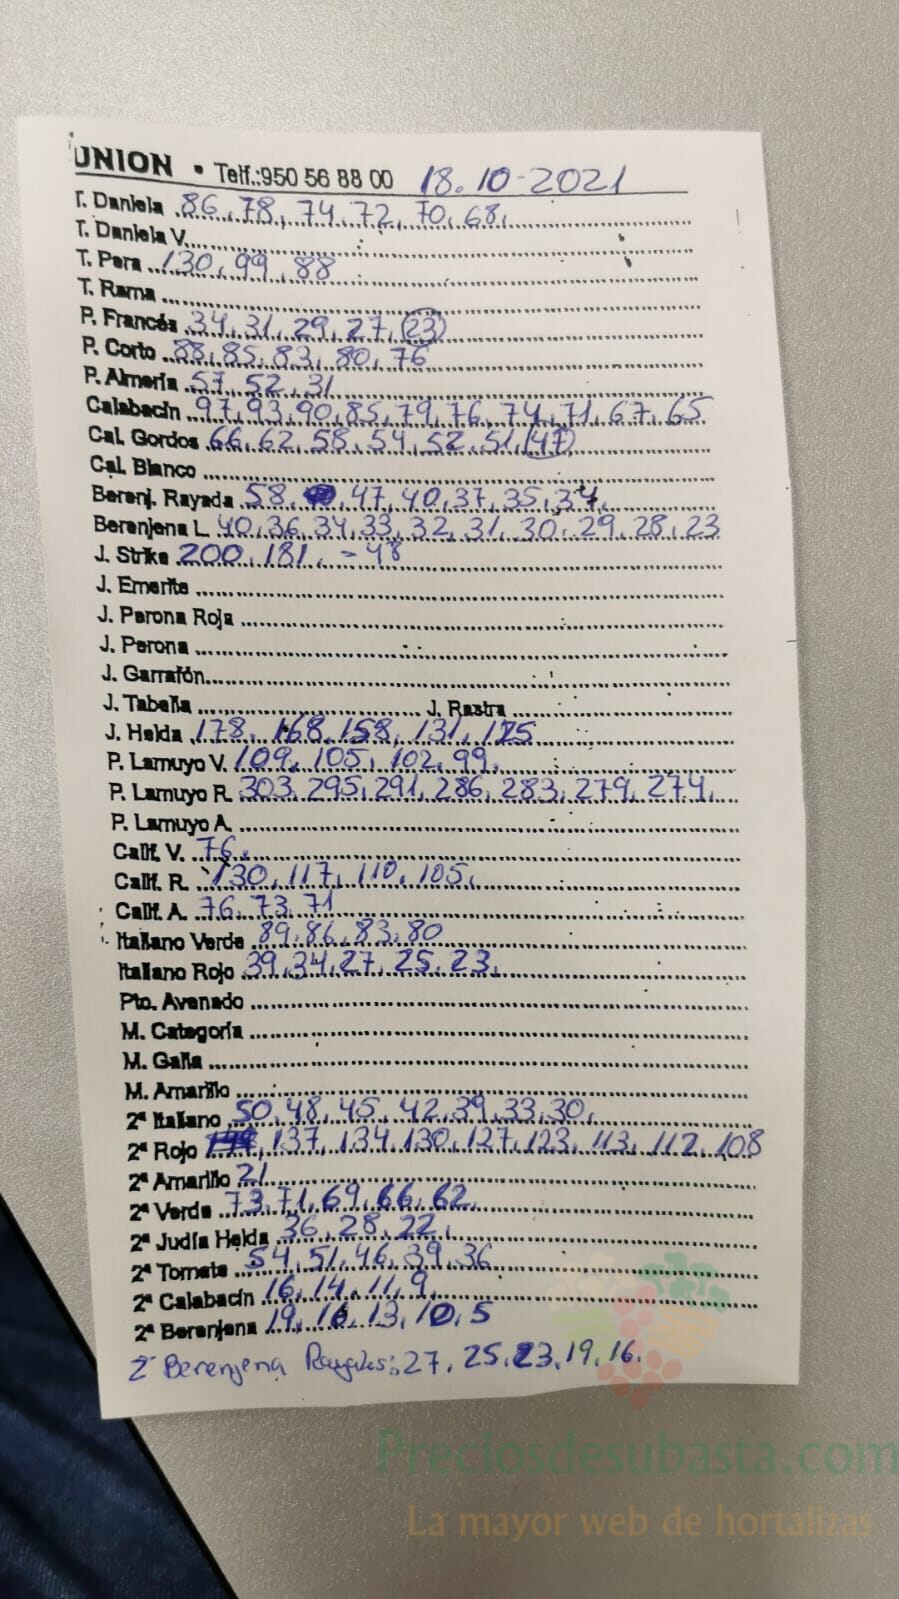 UNION • Telf.:950 56 88 00 18.10-2021
T. Daniela 86, 78, 74, 72, 70, 68,
T. Daniela V.
T. Pera 130, 99, 88
T. Rama
P. Francés 34, 31, 29, 27, (23)
P. Corto 88, 85, 83, 80, 76
P. Almería 57, 52, 31
Calabacín 97, 93, 90, 85, 79, 76, 74, 71, 67, 65
Cal. Gordos 66, 62, 58, 54, 52, 51, (47)
Cal. Blanco
Berenj. Rayada 58, 47, 40, 37, 35, 34,
Berenjena L. 40, 36, 34, 33, 32, 31, 30, 29, 28, 23
J. Strike 200, 181, - 48
J. Emerite
J. Perona Roja
J. Perona
J. Garrafón
J. Tabella J. Rastra
J. Helda 178, 168, 158, 131, 125
P. Lamuyo V. 109, 105, 102, 99,
P. Lamuyo R. 303, 295, 291, 286, 283, 279, 274,
P. Lamuyo A.
Calif. V. 76,
Calif. R. 130, 117, 110, 105,
Calif. A. 76, 73, 71
Italiano Verde 89, 86, 83, 80
Italiano Rojo 39, 34, 27, 25, 23,
Pto. Avenado
M. Categoría
M. Galia
M. Amarillo
2ª Italiano 50, 48, 45, 42, 39, 33, 30,
2ª Rojo 137, 134, 130, 127, 123, 113, 112, 108
2ª Amarillo 21
2ª Verde 73, 71, 69, 66, 62,
2ª Judía Helda 36, 28, 22,
2ª Tomate 54, 51, 46, 39, 36
2ª Calabacín 16, 14, 11, 9,
2ª Berenjena 19, 16, 13, 10, 5
2ª Berenjena : 27, 25, 23, 19, 16.
Preciosdesubasta.com
La mayor web de hortalizas